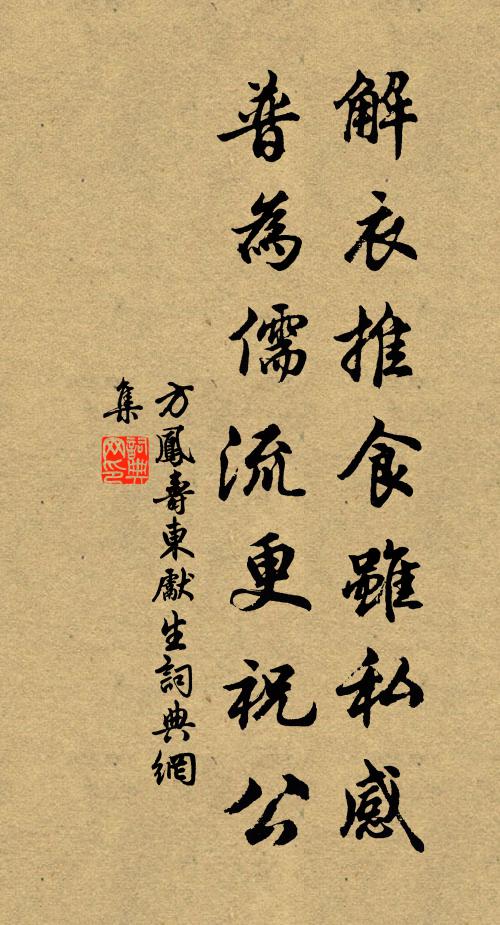 解衣推食雖私感
普為儒流更祝公
方鳳壽東獻生詞典網
集
詞典网印